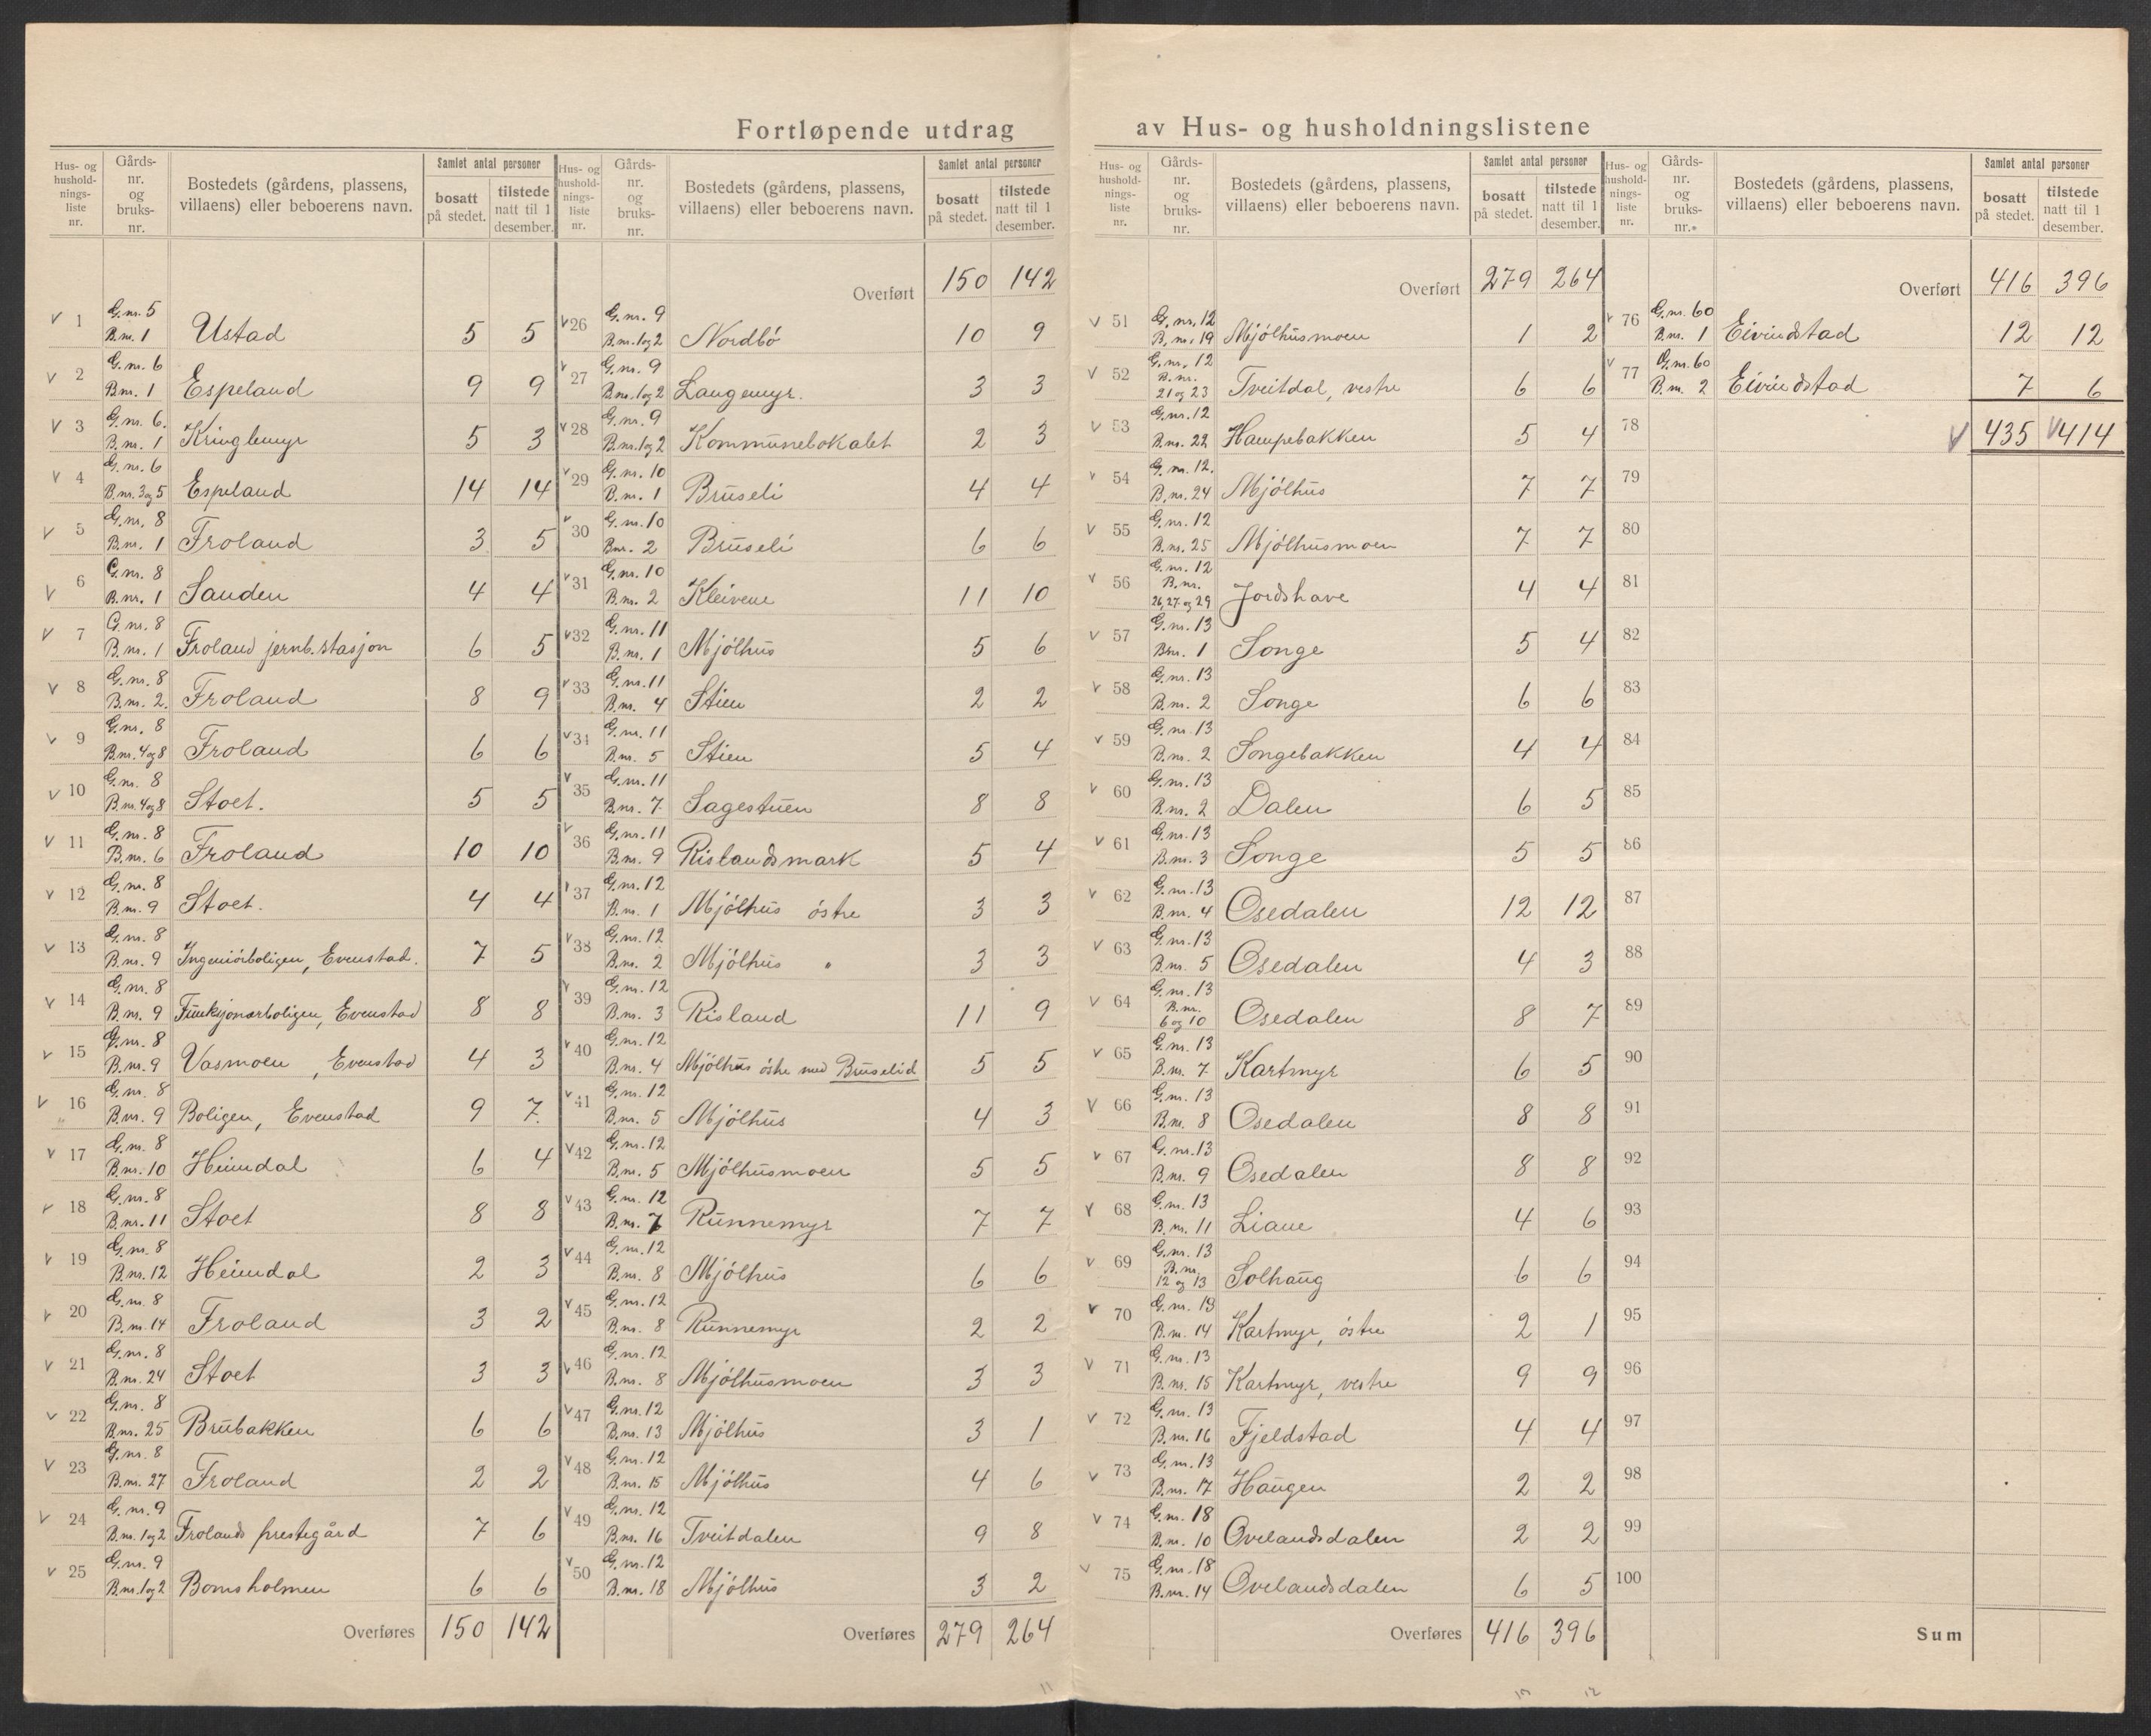 Fortløpende utdrag av Hus- og husholdningslistene
Hus- og husholdnings-liste nr. | Gårds-nr. og bruks-nr. | Bostedets (gårdens, plassens, villaens) eller beboerens navn. | Samlet antal personer bosatt på stedet. | tilstede natt til 1 desember.
v 1 G.nr. 5 B.nr. 1 Ustad 5 5
v 2 G.nr. 6 B.nr. 1 Espeland 9 9
v 3 G.nr. 6. B.nr. 1 Kringlemyr 5 3
v 4 G.nr. 6 B.nr. 3 og 5 Espeland 14 14
v 5 G.nr. 8 B.nr. 1 Froland 3 5
v 6 G.nr. 8 B.nr. 1 Sanden 4 4
v 7 G.nr. 8 B.nr. 1 Froland jernb.stasjon 6 5
v 8 G.nr. 8 B.nr. 2. Froland 8 9
v 9 G.nr. 8 B.nr. 4 og 8 Froland 6 6
v 10 G.nr. 8 B.nr. 4 og 8 Stoet. 5 5
v 11 G.nr. 8 B.nr. 6 Froland 10 10
v 12 G.nr. 8 B.nr. 9 Stoet. 4 4
v 13 G.nr. 8 B.nr. 9 Ingeniörboligen, Evenstad. 7 5
v 14 G.nr. 8 B.nr. 9 Funksjonærboligen, Evenstad 8 8
v 15 G.nr. 8 B.nr. 9 Vasmoen, Evenstad 4 3
v 16 G.nr. 8 B.nr. 9 Boligen, Evenstad 9 7
v 17 G.nr. 8 B.nr. 10 Heimdal 6 4
v 18 G.nr. 8 B.nr. 11 Stoet 8 8
v 19 G.nr. 8 B.nr. 12 Heimdal 2 3
v 20 G.nr. 8 B.nr. 14 Froland 3 2
v 21 G.nr. 8 B.nr. 24 Stoet 3 3
v 22 G.nr. 8 B.nr. 25 Brubakken 6 6
v 23 G.nr. 8 B.nr. 27 Froland 2 2
v 24 G.nr. 9 B.nr. 1 og 2 Frolands prestegård 7 6
v 25 G.nr. 9 B.nr. 1 og 2 Bomsholmen 6 6
Overføres 150 142
Hus- og husholdnings-liste nr. | Gårds-nr. og bruks-nr. | Bostedets (gårdens, plassens, villaens) eller beboerens navn. | Samlet antal personer bosatt på stedet. | tilstede natt til 1 desember.
Overført 150 142
v 26 G.nr. 9 B.nr. 1 og 2 Nordbö 10 9
v 27 G.nr. 9 B.nr. 1 og 2 Langemyr. 3 3
v 28 G.nr. 9 B.nr. 1 og 2 Kommunelokalet 2 3
v 29 G.nr. 10 B.nr. 1 Bruseli 4 4
v 30 G.nr. 10 B.nr. 2 Bruseli 6 6
v 31 G.nr. 10 B.nr. 2 Kleivene 11 10
v 32 G.nr. 11 B.nr. 1 Mjölhus 5 6
v 33 G.nr. 11 B.nr. 4 Stien 2 2
v 34 G.nr. 11 B.nr. 5 Stien 5 4
v 35 G.nr. 11 B.nr. 7 Sagestuen 8 8
v 36 G.nr. 11 B.nr. 9 Rislandsmark 5 4
v 37 G.nr. 12 B.nr. 1 Mjölhus östre 3 3
v 38 G.nr. 12 B.nr. 2 Mjölhus " 3 3
v 39 G.nr. 12 B.nr. 3 Risland 11 9
v 40 G.nr. 12 B.nr. 4 Mjölhus östre med Bruselid 5 5
v 41 G.nr. 12 B.nr. 5 Mjölhus 4 3
v 42 G.nr. 12 B.nr. 5 Mjölhusmoen 5 5
v 43 G.nr. 12 B.nr. 7 Runnemyr 7 7
v 44 G.nr. 12 B.nr. 8 Mjölhus 6 6
v 45 G.nr. 12 B.nr. 8 Runnemyr 2 2
v 46 G.nr. 12 B.nr. 8 Mjölhusmoen 3 3
v 47 G.nr. 12 B.nr. 13 Mjölhus 3 1
v 48 G.nr. 12 B.nr. 15 Mjölhus 4 6
v 49 G.nr. 12 B.nr. 16 Tveitdalen 9 8
v 50 G.nr. 12 B.nr. 18 Mjölhus 3 2
Overføres 279 264
11
Hus- og hushold-nings-liste nr. | Gårds-nr. og bruks-nr. | Bostedets (gårdens, plassens, villaens) eller beboerens navn. | Samlet antal personer bosatt på stedet. | tilstede natt til 1 desember.
Overført 279 264
v 51 G.nr. 12 B.nr. 19 Mjölhusmoen 1 2
v 52 G.nr. 12 B.nr. 21 og 23 Tveitdal, vestre 6 6
v 53 G.nr. 12 B.nr. 22 Hampebakken 5 4
v 54 G.nr. 12. B.nr. 24 Mjölhus 7 7
v 55 G.nr. 12 B.nr. 25 Mjölhusmoen 7 7
v 56 G.nr. 12 B.nr. 26, 27 og 29 Jordshave 4 4
v 57 G.nr. 13 B.nr. 1 Songe 5 4
v 58 G.nr. 13 B.nr. 2 Songe 6 6
v 59 G.nr. 13 B.nr. 2 Songebakken 4 4
v 60 G.nr. 13 B.nr. 2 Dalen 6 5
v 61 G.nr. 13 B.nr. 3 Songe 5 5
v 62 G.nr. 13 B.nr. 4 Osedalen 12 12
v 63 G.nr. 13 B.nr. 5 Osedalen 4 3
v 64 G.nr. 13 B.nr. 6 og 10 Osedalen 8 7
v 65 G.nr. 13 B.nr. 7 Kartmyr 6 5
v 66 G.nr. 13 B.nr. 8 Osedalen 8 8
v 67 G.nr. 13 B.nr. 9 Osedalen 8 8
v 68 G.nr. 13 B.nr. 11 Liane 4 6
v 69 G.nr. 13 B.nr. 12 og 13 Solhaug 6 6
v 70 G.nr. 13 B.nr. 14 Kartmyr, östre 2 1
v 71 G.nr. 13 B.nr. 15 Kartmyr, vestre 9 9
v 72 G.nr. 13 B.nr. 16 Fjeldstad 4 4
v 73 G.nr. 13 B.nr. 17 Haugen 2 2
v 74 G.nr. 18 B.nr. 10 Ovelandsdalen 2 2
v 75 G.nr. 18 B.nr. 14 Ovelandsdalen 6 5
Overføres 416 396
12
Hus- og husholdnings-liste nr. | Gårds-nr. og bruks-nr. | Bostedets (gårdens, plassens, villaens) eller beboerens navn. | Samlet antal personer bosatt på stedet. | tilstede natt til 1 desember.
Overført 416 396
v 76 G.nr. 60 B.nr. 1 Eivindstad 12 12
v 77 G.nr. 60 B.nr. 2 Eivindstad 7 6
78 v 435 v 414
79
80
81
82
83
84
85
86
87
88
89
90
91
92
93
94
95
96
97
98
99
100
Sum